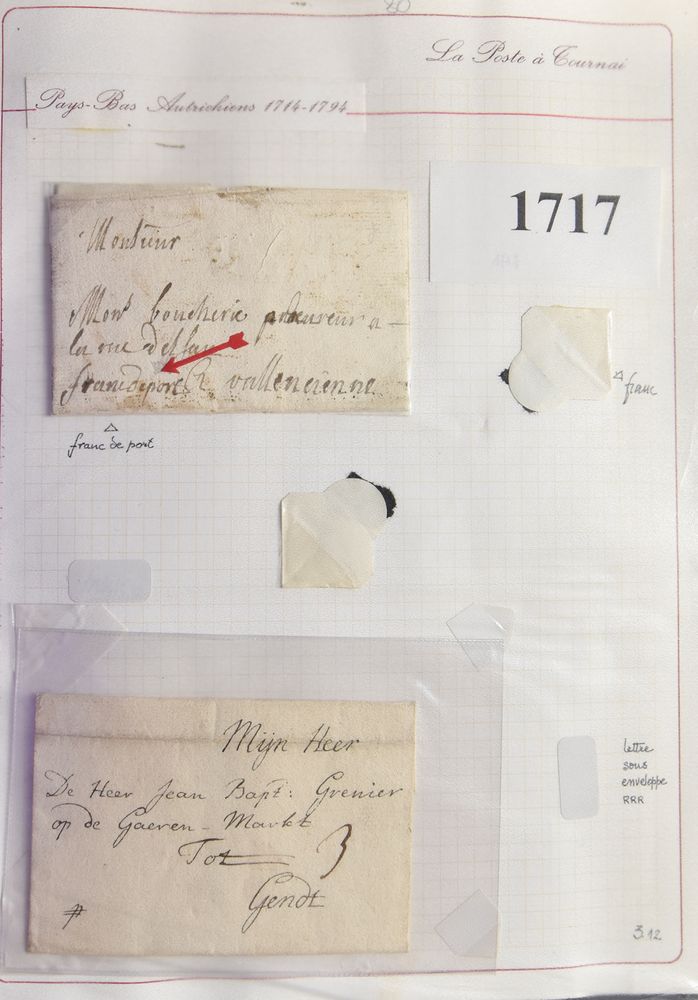 La Poste à Tournai
Pays-Bas Autrichiens 1714-1794
1717
Monsieur
Mons boucherie procureur a
la rue
franc de port a vallencienne
franc
franc de port
Mijn Heer
De Heer Jean Bapt: Grenier
op de Gaeren - Markt
Tot 3
Gendt
lettre
sous
enveloppe
RRR
3.12